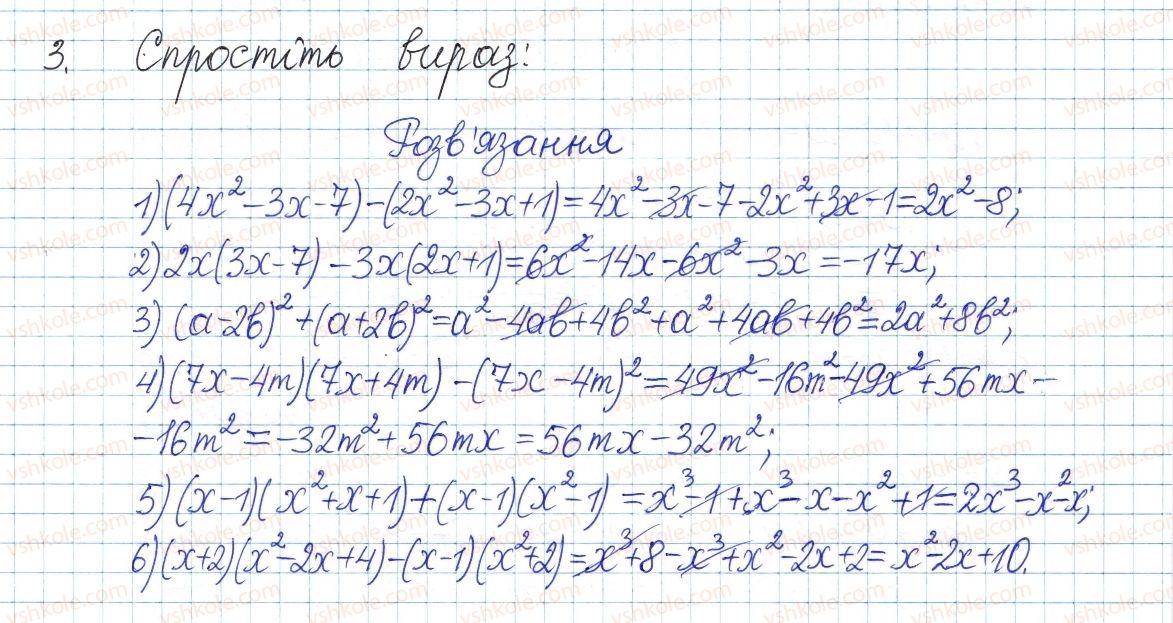 3. Спростіть вираз:
Розв'язання
1) (4x² - 3x - 7) - (2x² - 3x + 1) = 4x² - 3x - 7 - 2x² + 3x - 1 = 2x² - 8;
2) 2x(3x - 7) - 3x(2x + 1) = 6x² - 14x - 6x² - 3x = -17x;
3) (a - 2b)² + (a + 2b)² = a² - 4ab + 4b² + a² + 4ab + 4b² = 2a² + 8b²;
4) (7x - 4m)(7x + 4m) - (7x - 4m)² = 49x² - 16m² - 49x² + 56mx -
- 16m² = -32m² + 56mx = 56mx - 32m²;
5) (x - 1)(x² + x + 1) + (x - 1)(x² - 1) = x³ - 1 + x³ - x - x² + 1 = 2x³ - x² - x;
6) (x + 2)(x² - 2x + 4) - (x - 1)(x² + 2) = x³ + 8 - x³ + x² - 2x + 2 = x² - 2x + 10.
vshkole.com